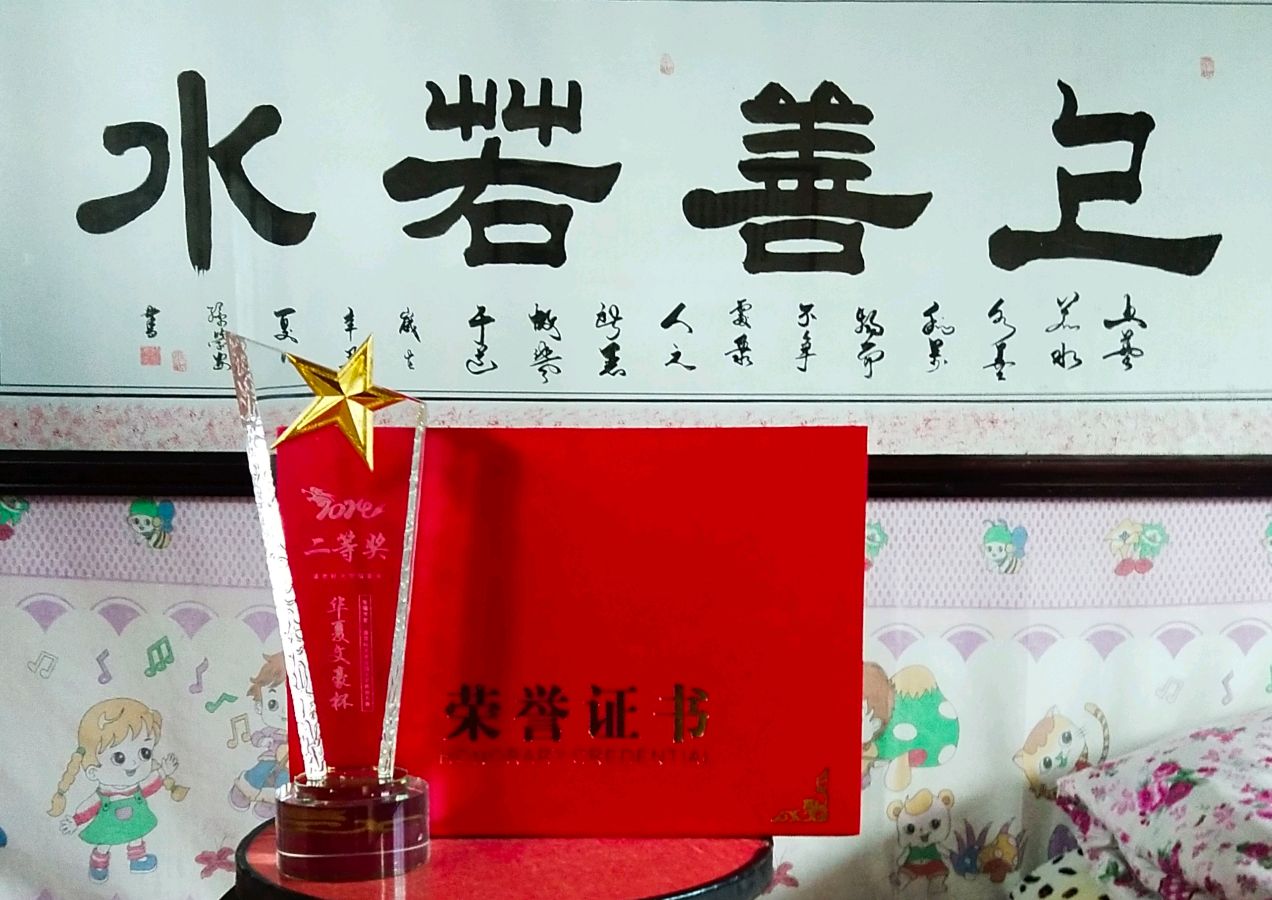 上善若水
上善若水水善利萬物而不争處衆人之所惡故幾于道歲在辛丑夏
書
2024
二等奖
华夏文豪杯
荣誉证书
HONORARY CREDENTIAL